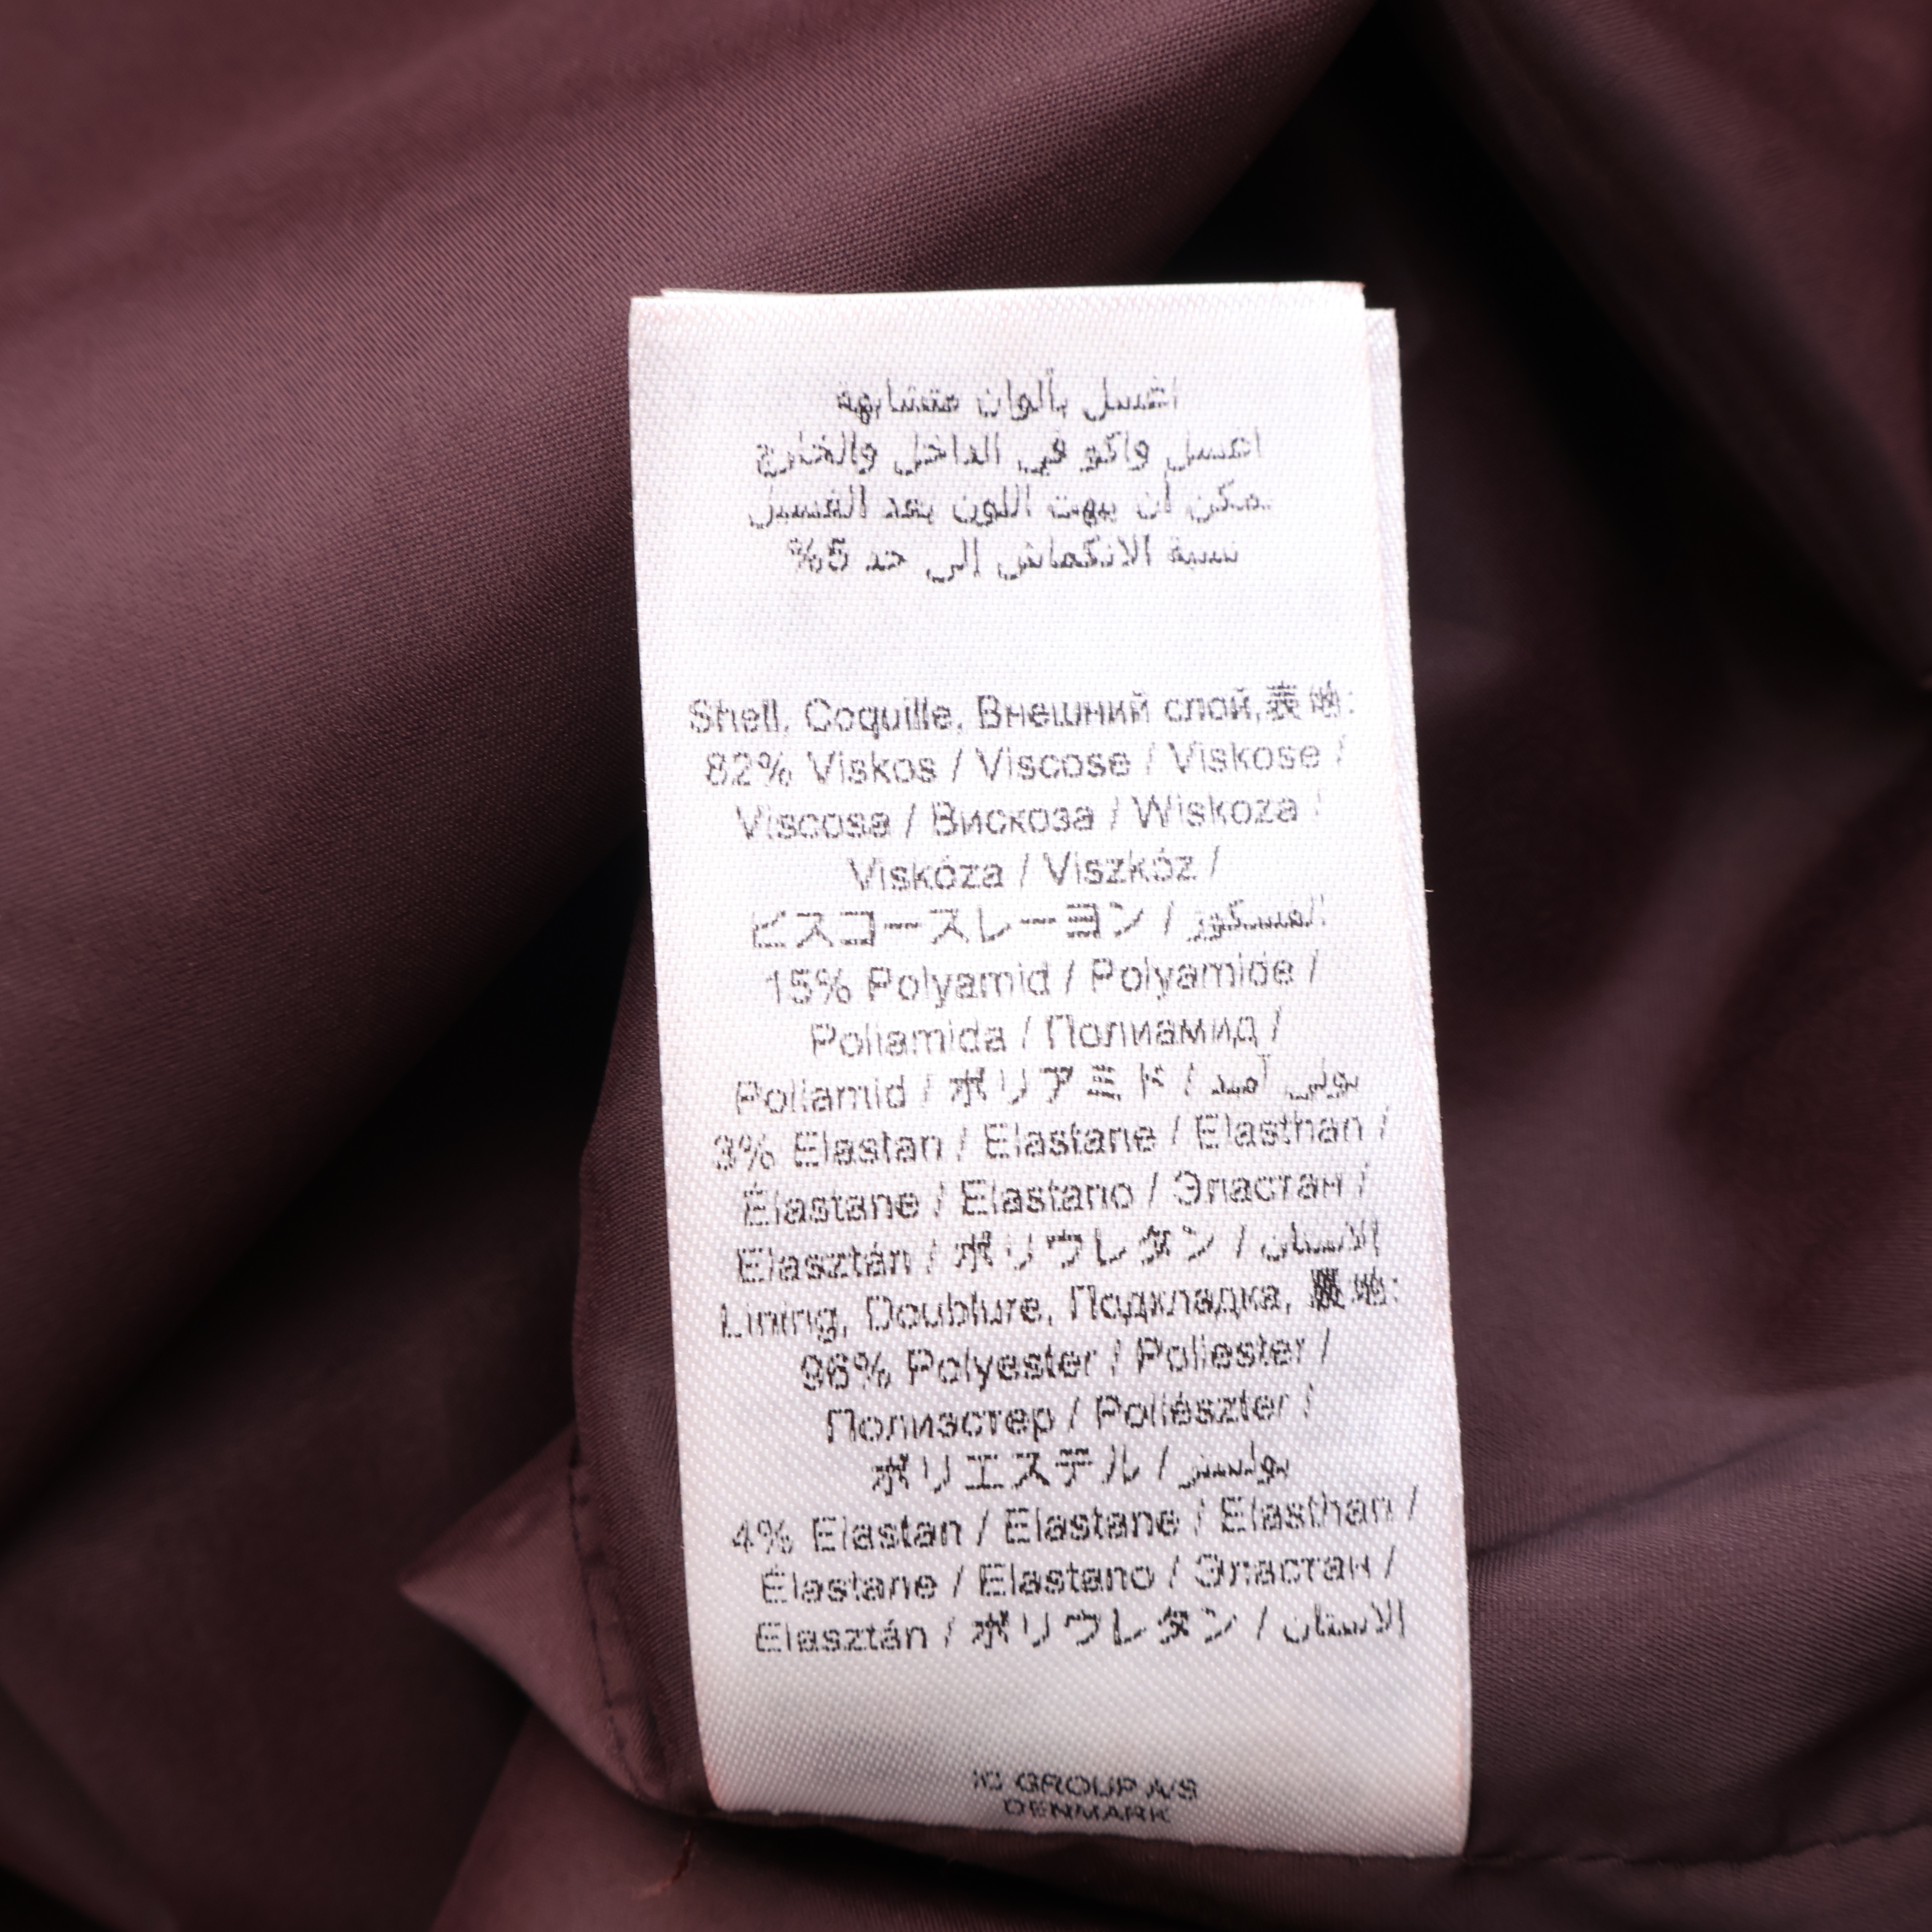 اغسل بألوان متشابهة
اغسل واكو في الداخل والخارج
يمكن أن يبهت اللون بعد الغسيل
نسبة الانكماش إلى حد 5%
Shell, Coquille, Внешний слой,表地:
82% Viskos / Viscose / Viskose /
Viscosa / Вискоза / Wiskoza /
Viskóza / Viszkóz /
ビスコースレーヨン / الفسكوز
15% Polyamid / Polyamide /
Poliamida / Полиамид /
Poliamid / ポリアミド / بولي آميد
3% Elastan / Elastane / Elasthan /
Élastane / Elastano / Эластан /
Elasztán / ポリウレタン / الاستان
Lining, Doublure, Подкладка, 裏地:
96% Polyester / Poliester /
Полиэстер / Poliészter /
ポリエステル / بوليستر
4% Elastan / Elastane / Elasthan /
Élastane / Elastano / Эластан /
Elasztán / ポリウレタン / الاستان
IC GROUP A/S
DENMARK